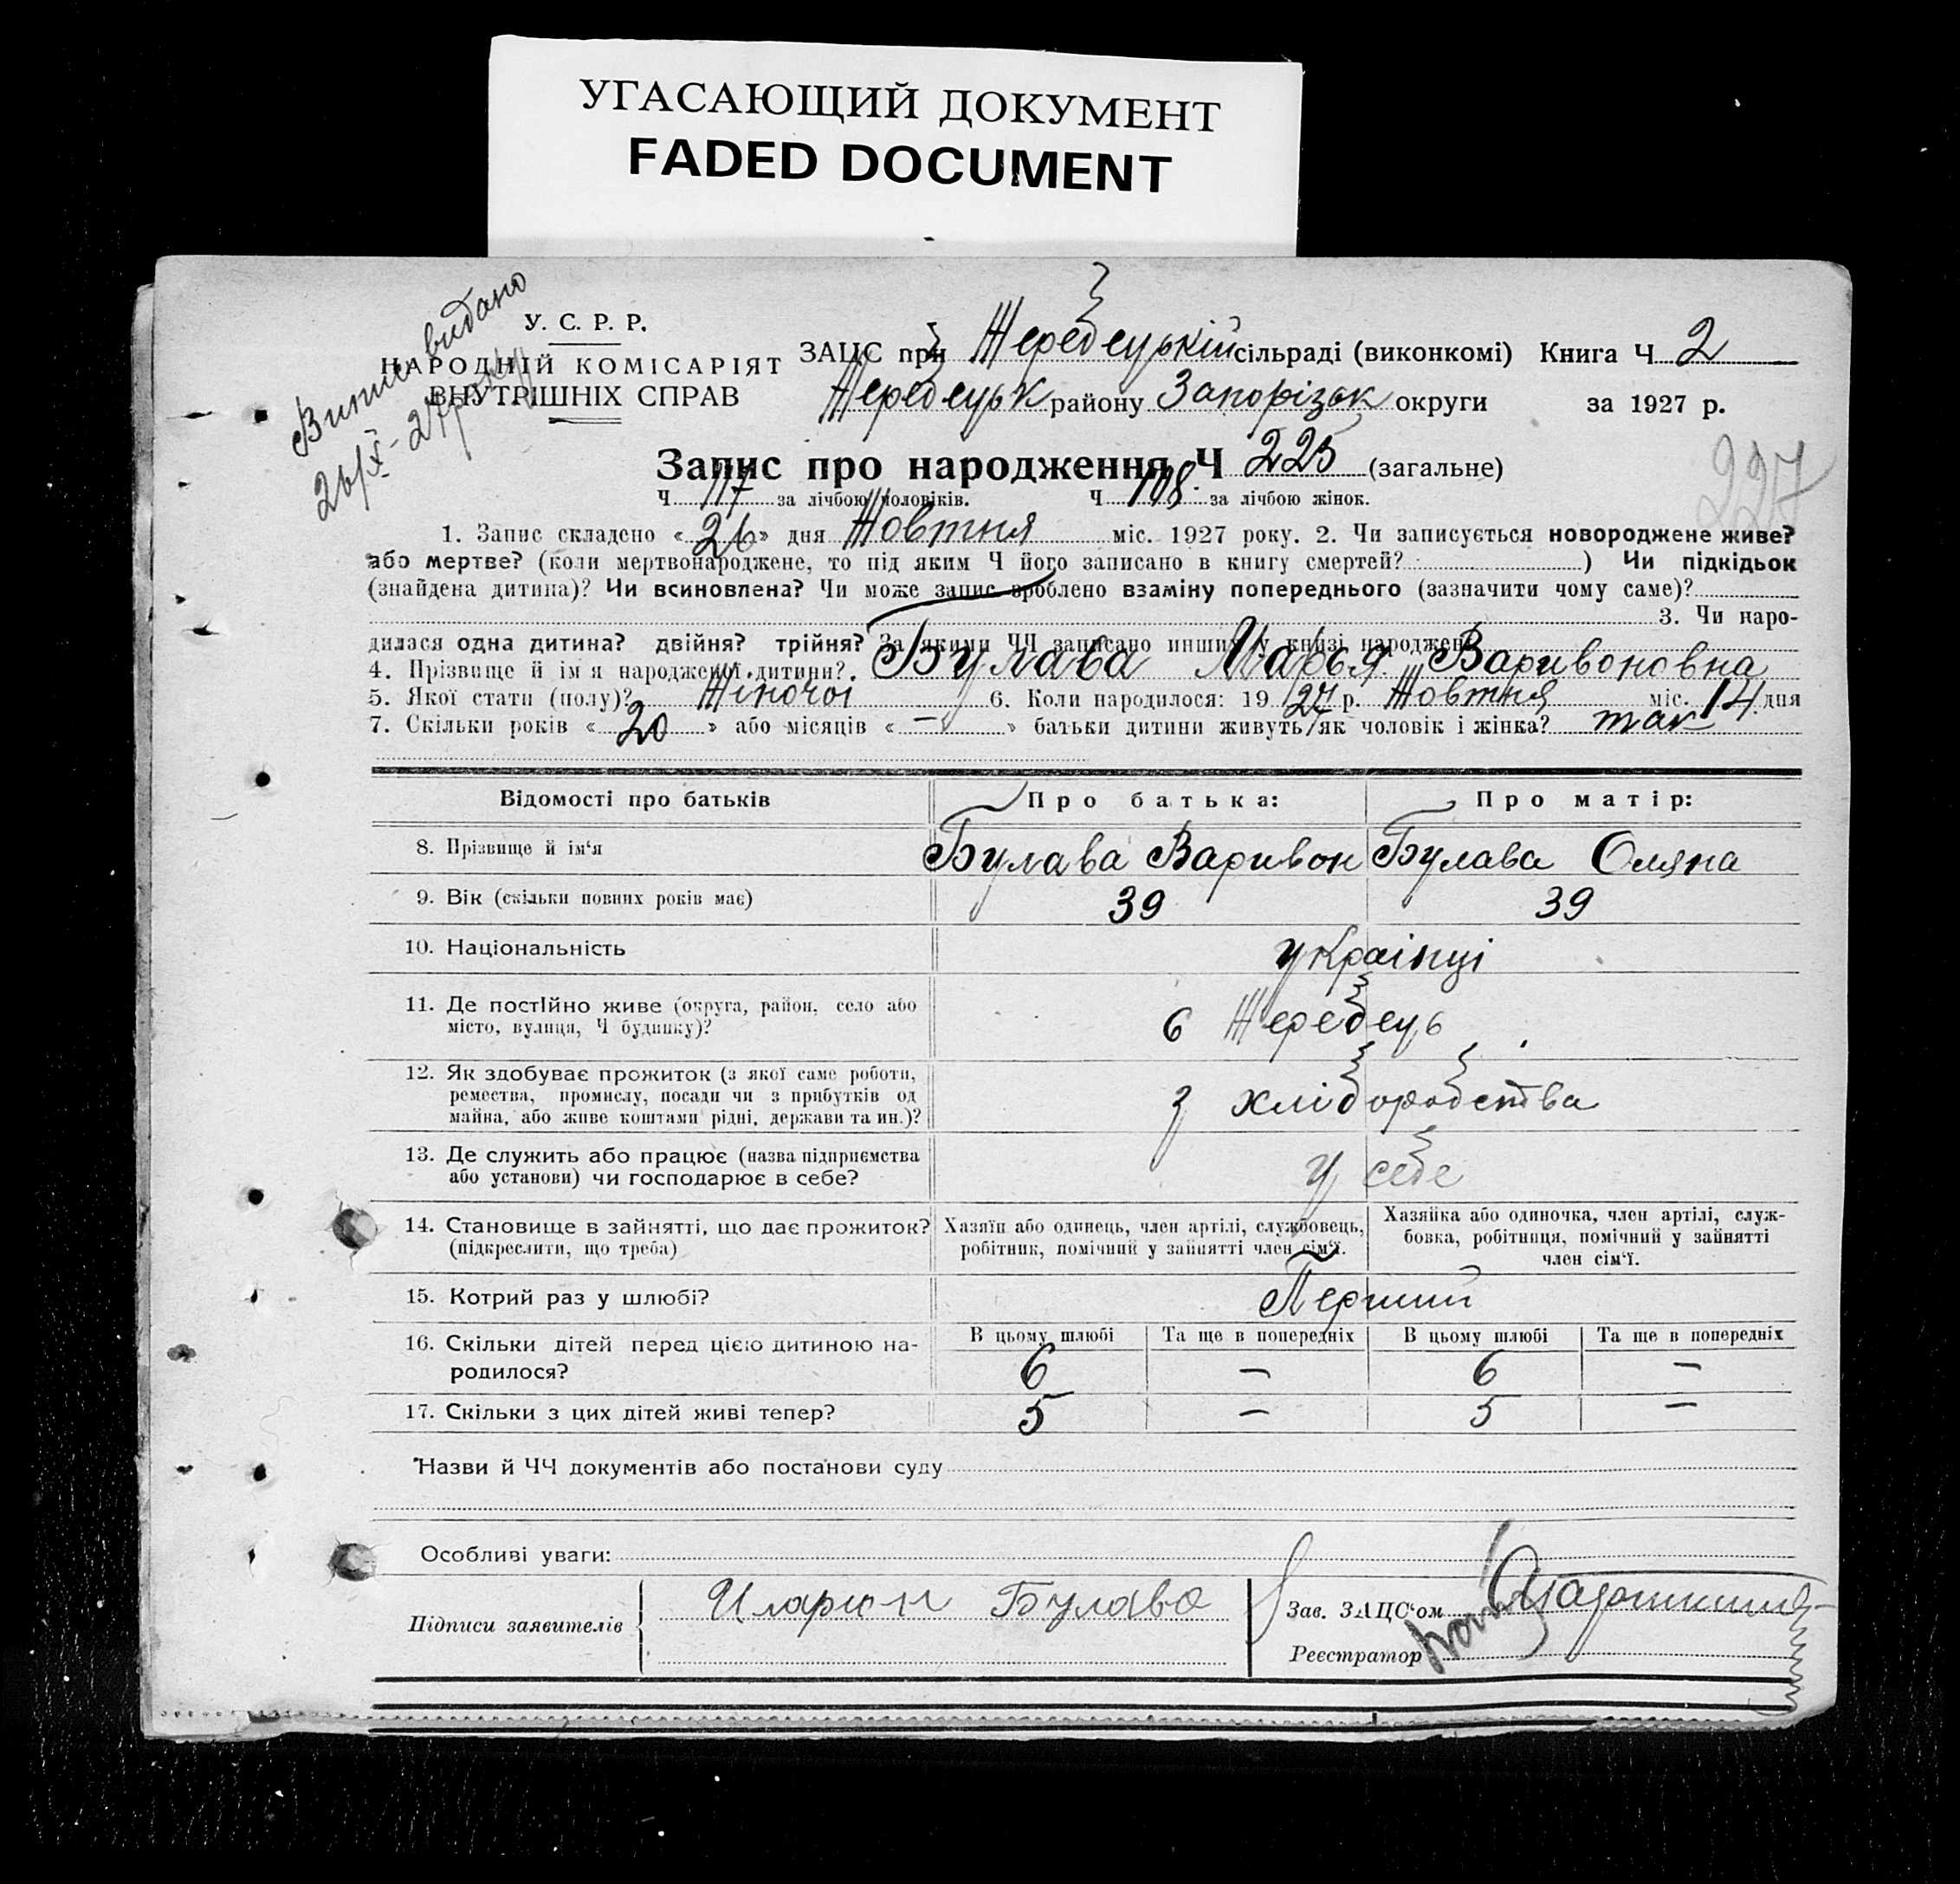 УГАСАЮЩИЙ ДОКУМЕНТ
FADED DOCUMENT
Випис видано
26/X-27 року
У. С. Р. Р.
НАРОДНІЙ КОМІСАРІЯТ
ВНУТРІШНІХ СПРАВ
ЗАЦС при Жеребецькій сільраді (виконкомі) Книга Ч 2
Жеребецьк району Запорізьк округи за 1927 р.
227
Запис про народження Ч 225 (загальне)
Ч 117 за лічбою чоловіків. Ч 108. за лічбою жінок.
1. Запис складено «26» дня Жовтня міс. 1927 року. 2. Чи записується новороджене живе?
або мертве? (коли мертвонароджене, то під яким Ч його записано в книгу смертей? ) Чи підкідьок
(знайдена дитина)? Чи всиновлена? Чи може запис зроблено взаміну попереднього (зазначити чому саме)?
3. Чи наро-
дилася одна дитина? двійня? трійня? За якими ЧЧ записано инших у книзі народжень
4. Прізвище й ім'я народженої дитини? Булава Марья Варивоновна
5. Якої стати (полу)? Жіночоі 6. Коли народилося: 1927 р. Жовтня міс. 14 дня
7. Скільки років «20» або місяців «—» батьки дитини живуть як чоловік і жінка? так
Відомості про батьків Про батька: Про матір:
8. Прізвище й ім'я Булава Варивон Булава Оляна
9. Вік (скільки повних років має) 39 39
10. Національність українці
11. Де постійно живе (округа, район, село або
місто, вулиця, Ч будинку)? с Жеребець
12. Як здобуває прожиток (з якої саме роботи,
ремества, промислу, посади чи з прибутків од
майна, або живе коштами рідні, держави та ин.)? з хліборобства
13. Де служить або працює (назва підприємства
або установи) чи господарює в себе? у себе
14. Становище в зайнятті, що дає прожиток?
(підкреслити, що треба)
Хазяїн або одинець, член артілі, службовець,
робітник, помічний у зайнятті член сім'ї.
Хазяйка або одиночка, член артілі, служ-
бовка, робітниця, помічний у зайнятті
член сім'ї.
15. Котрий раз у шлюбі? Перший
В цьому шлюбі Та ще в попередніх В цьому шлюбі Та ще в попередніх
16. Скільки дітей перед цією дитиною на-
родилося? 6 — 6 —
17. Скільки з цих дітей живі тепер? 5 — 5 —
Назви й ЧЧ документів або постанови суду
Особливі уваги:
Підписи заявителів Иларион Булава
Зав. ЗАЦС'ом
Реєстратор